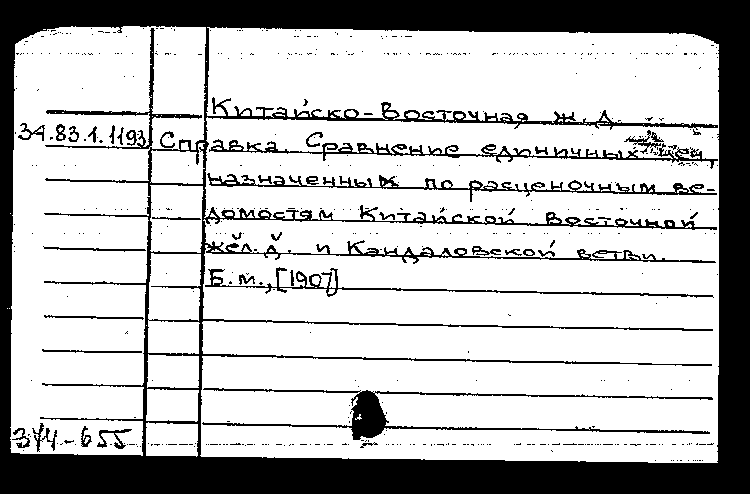 Китайско-Восточная ж. д.
34.83.1.1193 Справка. Сравнение единичных цен,
назначенных по расценочным ве-
домостям Китайской Восточной
жел. д. и Кандаловской ветви.
Б.м., [1907]
344-655